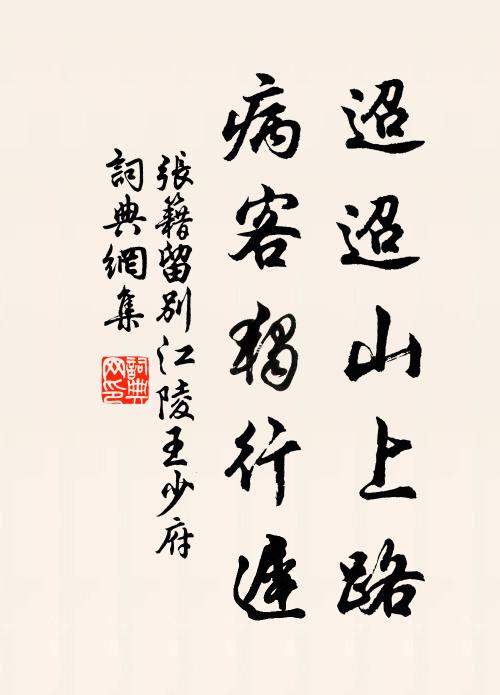 迢迢山上路
病客獨行遲
張籍留別江陵王少府
詞典網集
詞典網印